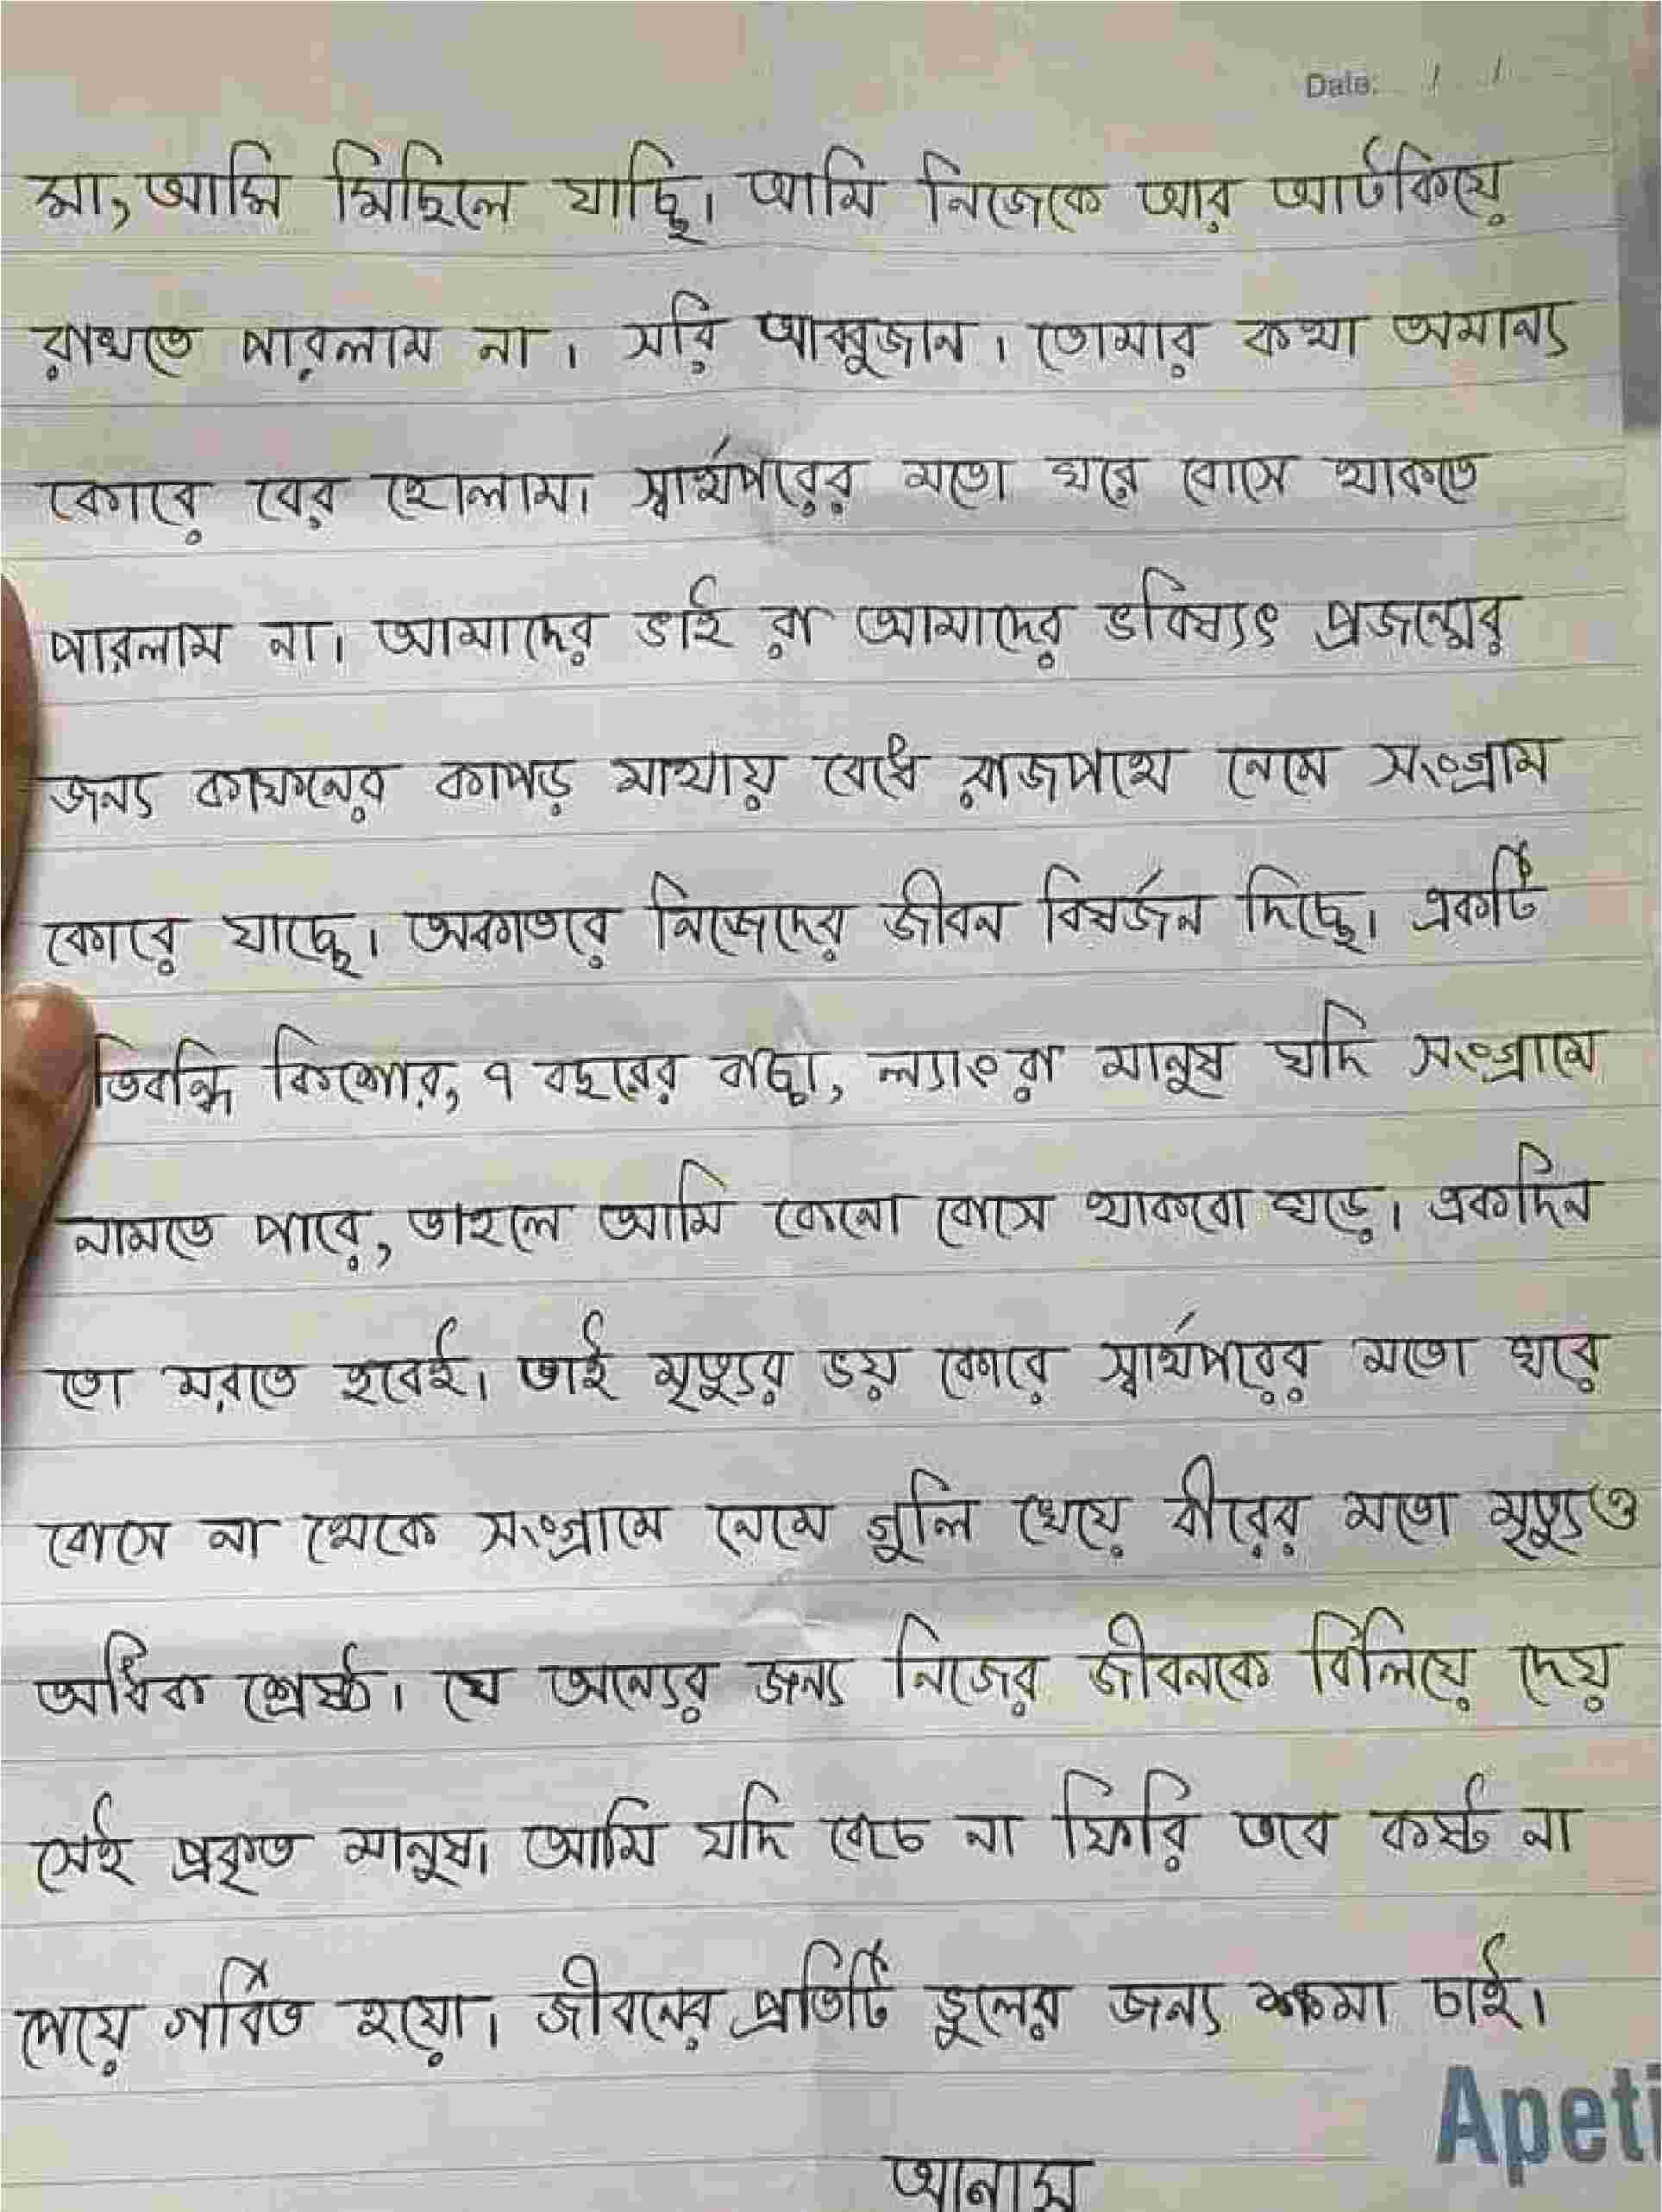 Date: / /
মা, আমি মিছিলে যাচ্ছি। আমি নিজেকে আর আটকিয়ে
রাখতে পারলাম না। সরি আব্বুজান। তোমার কথা অমান্য
কোরে বের হোলাম। স্বার্থপরের মতো ঘরে বোসে থাকতে
পারলাম না। আমাদের ভাই রা আমাদের ভবিষ্যৎ প্রজন্মের
জন্য কাফনের কাপড় মাথায় বেধে রাজপথে নেমে সংগ্রাম
কোরে যাচ্ছে। অকাতরে নিজেদের জীবন বিষর্জন দিচ্ছে। একটি
তিবন্ধি কিশোর, ৭ বছরের বাচ্চা, ল্যাংরা মানুষ যদি সংগ্রামে
নামতে পারে, তাহলে আমি কেনো বোসে থাকবো ঘড়ে। একদিন
তো মরতে হবেই। তাই মৃত্যুর ভয় কোরে স্বার্থপরের মতো ঘরে
বোসে না থেকে সংগ্রামে নেমে গুলি খেয়ে বীরের মতো মৃত্যুও
অধিক শ্রেষ্ঠ। যে অন্যের জন্য নিজের জীবনকে বিলিয়ে দেয়
সেই প্রকৃত মানুষ। আমি যদি বেচে না ফিরি তবে কষ্ট না
পেয়ে গর্বিত হয়ো। জীবনের প্রতিটি ভুলের জন্য ক্ষমা চাই।
Apeti
আনাস